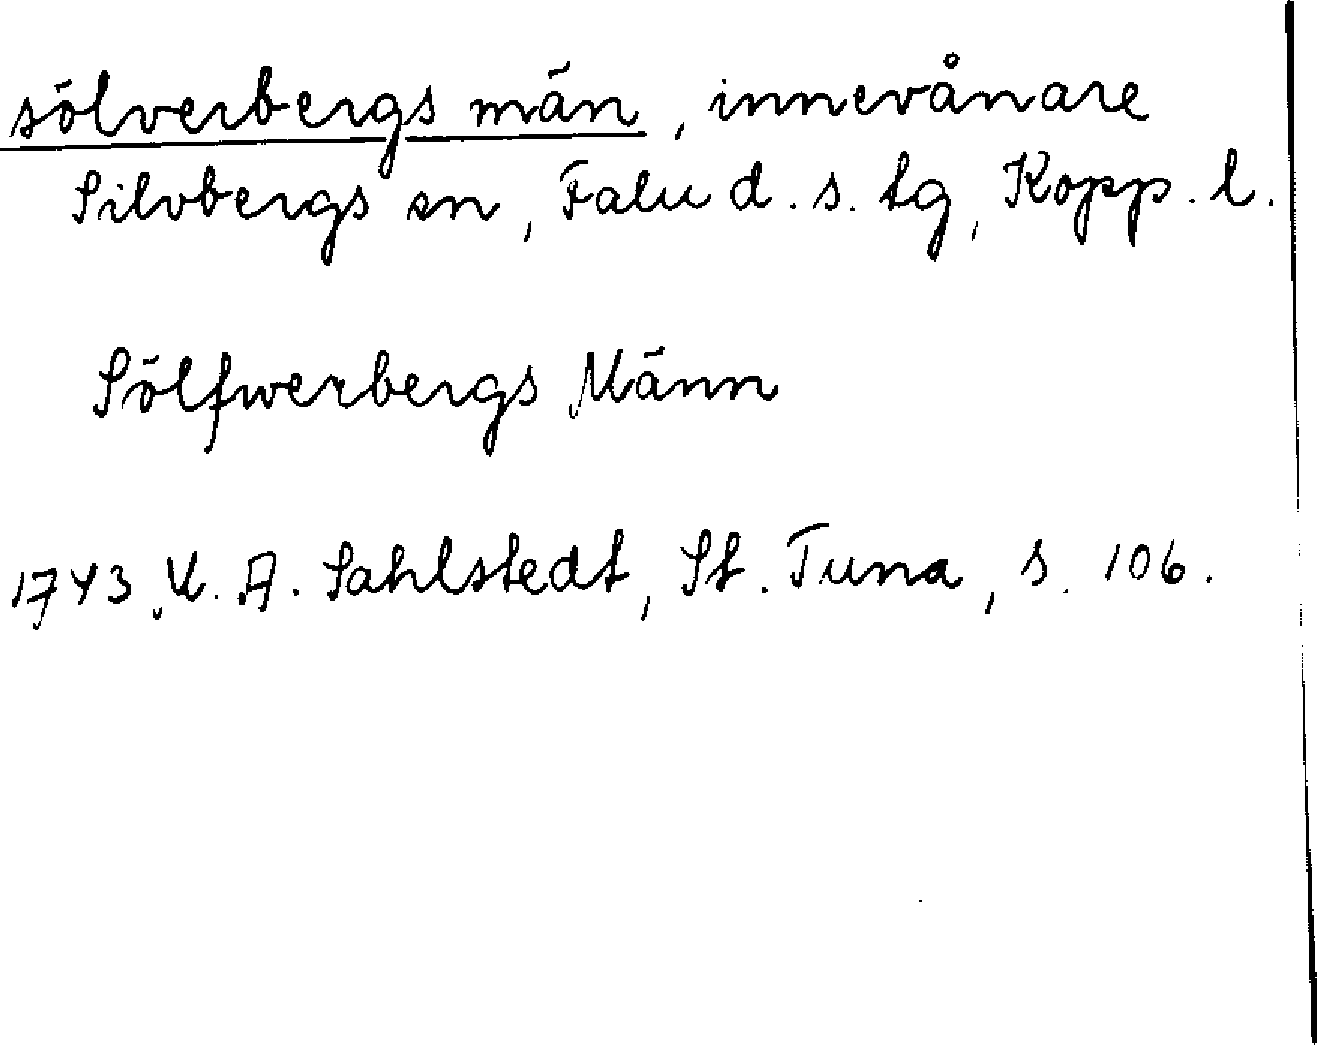 sölverbergs män, innevånare
Silvbergs sn, Falu d. s. tg, Kopp. l.
Sölfwerbergs Männ
1743, U. A. Sahlstedt, St. Tuna, s. 106.